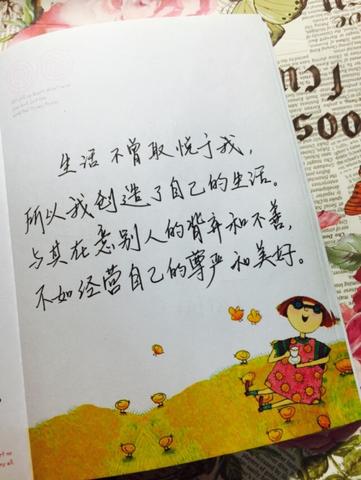 生活不曾取悦于我，
所以我创造了自己的生活。
与其在意别人的背弃和不善，
不如经营自己的尊严和美好。